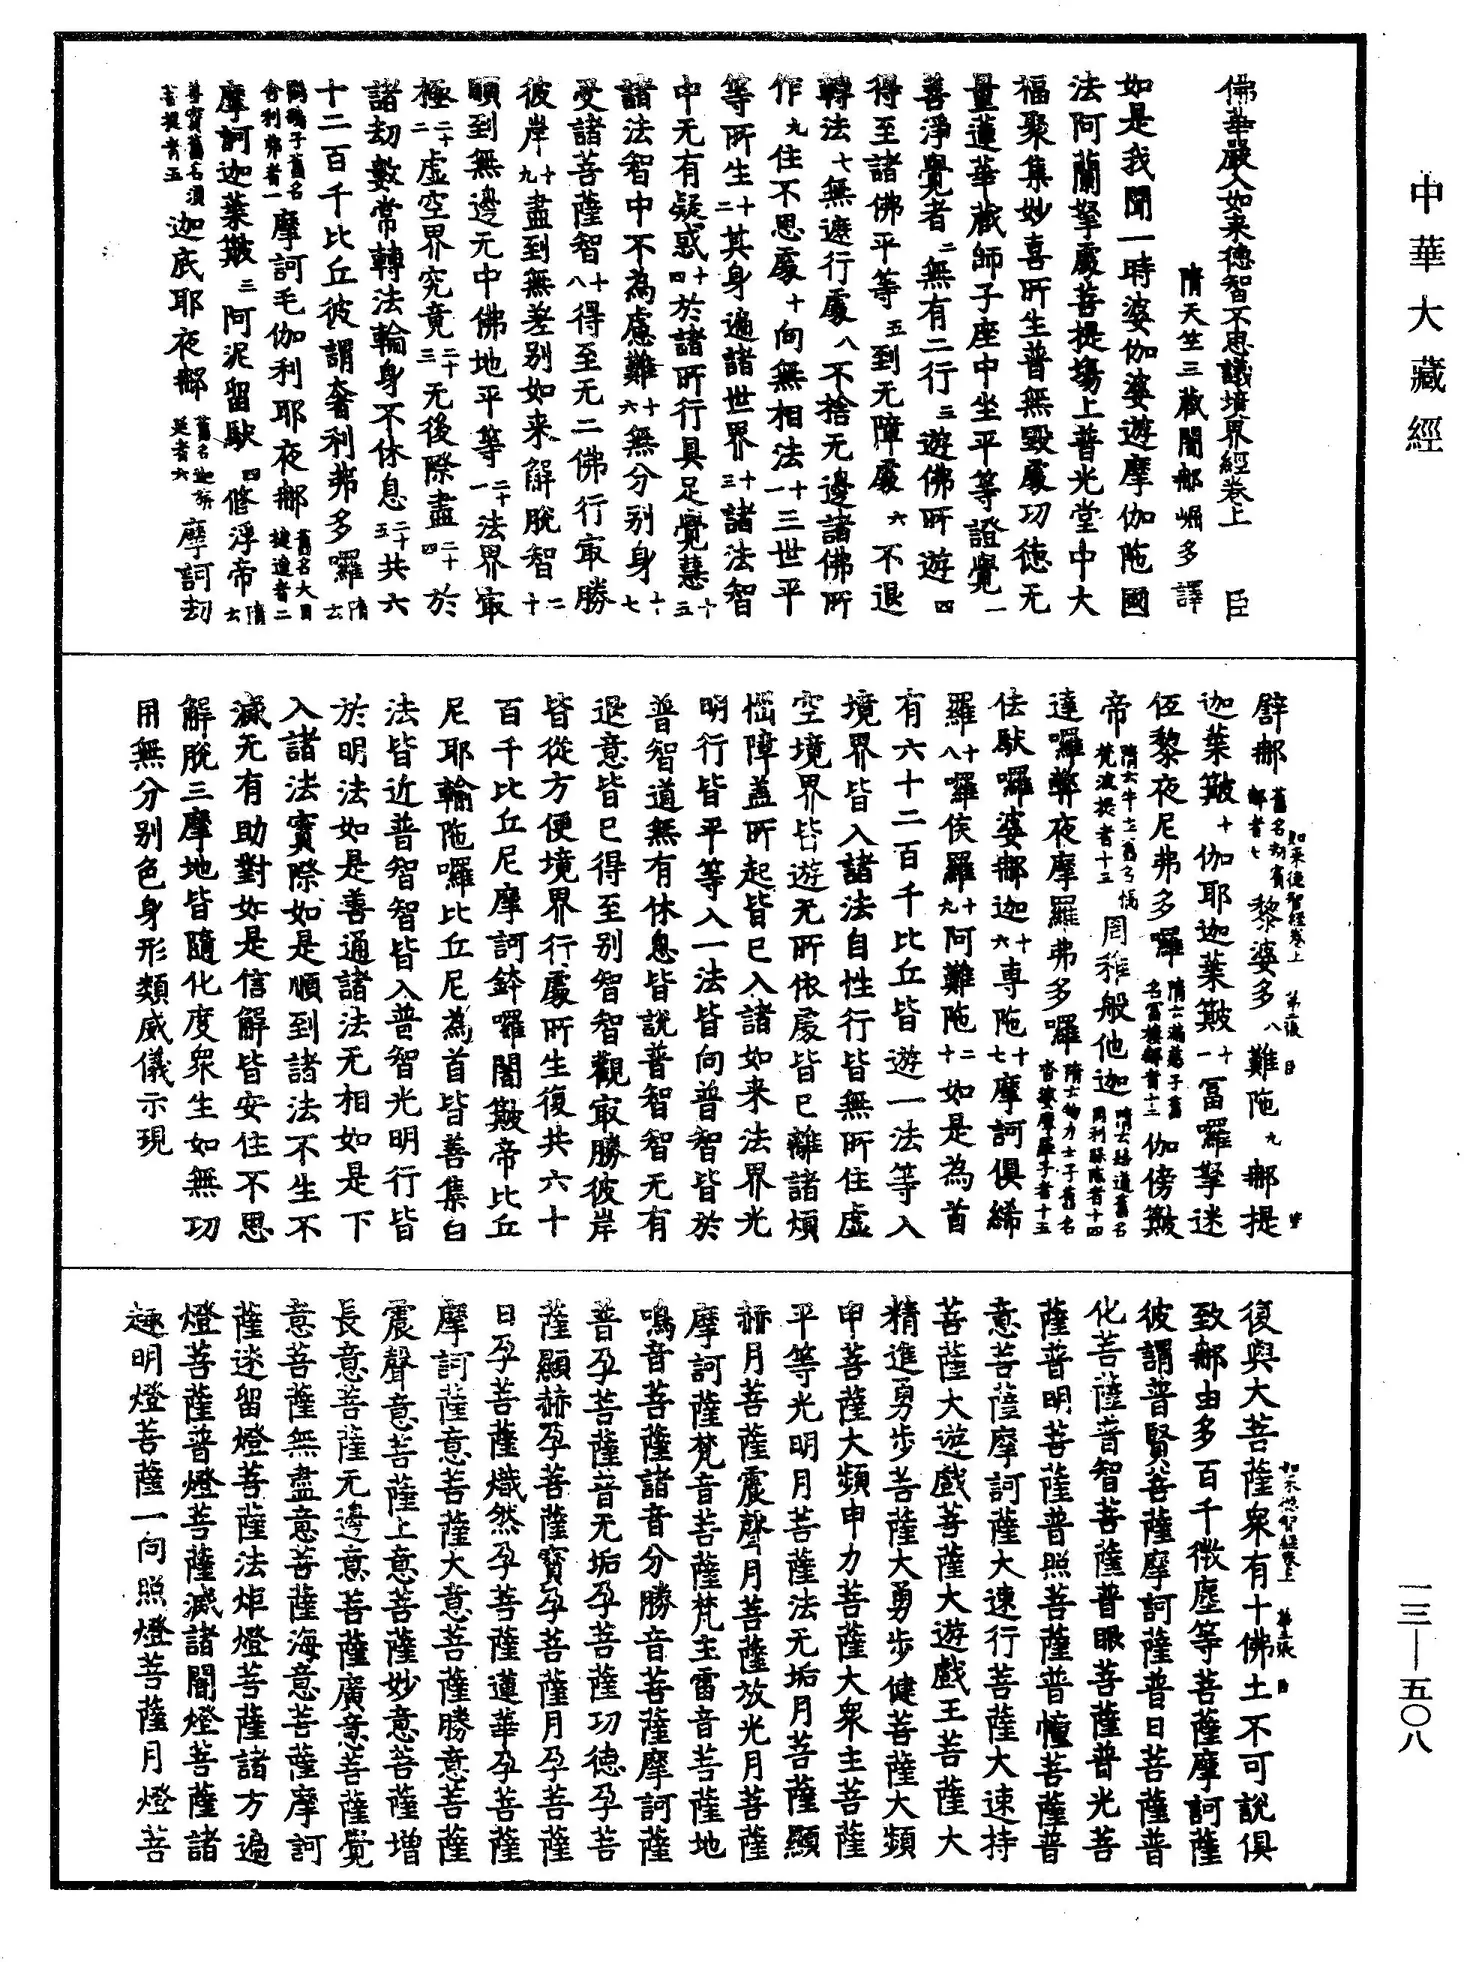 中華大藏經
一三—五〇八
佛華嚴入如来徳智不思議境界經卷上　臣
隋天竺三藏闍那崛多譯
如是我聞一時婆伽婆遊摩伽陁國
法阿蘭拏處菩提場上普光堂中大
福聚集妙喜所生普無毀處功徳无
量蓮華藏師子座中坐平等證覺一
善淨覺者二無有二行三遊佛所遊四
得至諸佛平等五到无障處六不退
轉法七無遮行處八不捨无邊諸佛所
作九住不思處十向無相法十一三世平
等所生十二其身遍諸世界十三諸法智
中无有疑惑十四於諸所行具足覺慧十五
諸法智中不為慮難十六無分别身十七
受諸菩薩智十八得至无二佛行㝡勝
彼岸十九盡到無差别如来解脱智二十
順到無邊无中佛地平等二十一法界㝡
極二十二虚空界究竟二十三无後際盡二十四於
諸劫數常轉法輪身不休息二十五共六
十二百千比丘彼謂奢利弗多囉隋云
鸜鵒子舊名舍利弗者一摩訶毛伽利耶夜那舊名大目揵連者二
摩訶迦葉簸三阿泥留馱四修浮帝隋云
善實舊名須菩提者五迦底耶夜那舊名迦旃延者六摩訶劫
如来徳智經卷上　第二張
劈那舊名劫賓那者七黎婆多八難陁九那提
迦葉簸十伽耶迦葉簸十一冨囉拏迷
低黎夜尼弗多囉隋云滿慈子舊名富樓那者十二伽傍簸
帝隋云牛主舊名憍梵波提者十三周稚般他迦隋云路道舊名周利槃陁者十四
達囉弊夜摩羅弗多囉隋云物力士子舊名沓婆摩羅子者十五
佉馱囉婆那迦十六専陁十七摩訶俱絺
羅十八囉侯羅十九阿難陁二十如是為首
有六十二百千比丘皆遊一法等入
境界皆入諸法自性行皆無所住虚
空境界皆遊无所依處皆已離諸煩
惱障蓋所起皆已入諸如来法界光
明行皆平等入一法皆向普智皆於
普智道無有休息皆説普智智无有
退意皆已得至别智智觀㝡勝彼岸
皆從方便境界行處所生復共六十
百千比丘尼摩訶鉢囉闍簸帝比丘
尼耶輸陁囉比丘尼為首皆善集白
法皆近普智智皆入普智光明行皆
於明法如是善通諸法无相如是下
入諸法實際如是順到諸法不生不
滅无有助對如是信解皆安住不思
解脱三摩地皆隨化度衆生如無功
用無分别色身形類威儀示現
如来徳智經卷上　第三張
復與大菩薩衆有十佛土不可説俱
致那由多百千微塵等菩薩摩訶薩
彼謂普賢菩薩摩訶薩普日菩薩普
化菩薩普智菩薩普眼菩薩普光菩
薩普明菩薩普照菩薩普幢菩薩普
意菩薩摩訶薩大速行菩薩大速持
菩薩大遊戲菩薩大遊戲王菩薩大
精進勇步菩薩大勇步健菩薩大頻
申菩薩大頻申力菩薩大衆主菩薩
平等光明月菩薩法无垢月菩薩顯
赫月菩薩震聲月菩薩放光月菩薩
摩訶薩梵音菩薩梵主雷音菩薩地
鳴音菩薩諸音分勝音菩薩摩訶薩
普孕菩薩普无垢孕菩薩功徳孕菩
薩顯赫孕菩薩寶孕菩薩月孕菩薩
日孕菩薩熾然孕菩薩蓮華孕菩薩
摩訶薩意菩薩大意菩薩勝意菩薩
震聲意菩薩上意菩薩妙意菩薩増
長意菩薩无邊意菩薩廣意菩薩覺
意菩薩無盡意菩薩海意菩薩摩訶
薩迷留燈菩薩法炬燈菩薩諸方遍
燈菩薩普燈菩薩滅諸闇燈菩薩諸
趣明燈菩薩一向照燈菩薩月燈菩